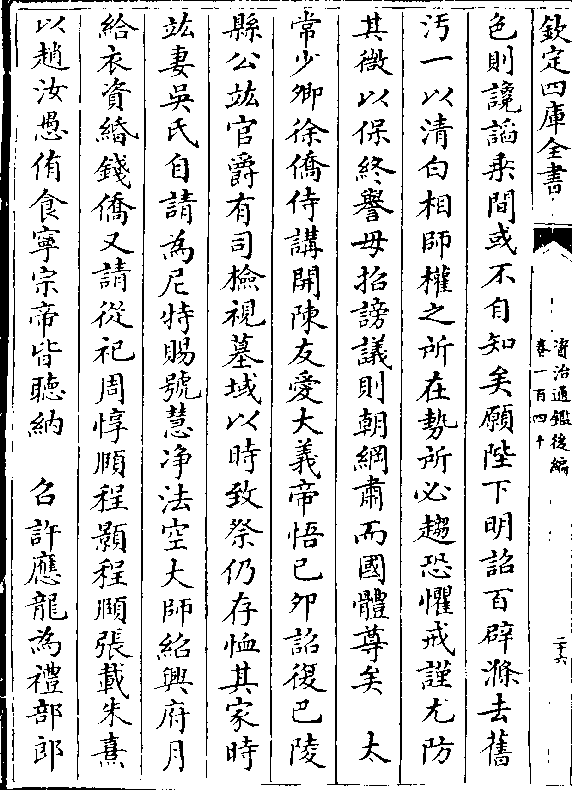 欽定四庫全書
資治通鑑後編
卷一百四十
二十六
色則讒謟乘間或不自知矣願陛下明詔百辟滌去舊
汚一以清白相師權之所在勢所必趨恐懼戒謹尤防
其微以保終譽毋招謗議則朝綱肅而國體尊矣　太
常少卿徐僑侍講開陳友愛大義帝悟已卯詔復巴陵
縣公竑官爵有司檢視墓域以時致祭仍存恤其家時
竑妻吳氏自請為尼特賜號慧净法空大師紹興府月
給衣資緡錢僑又請從祀周惇頤程顥程頤張載朱熹
以趙汝愚侑食寧宗帝皆聽納　召許應龍為禮部郎